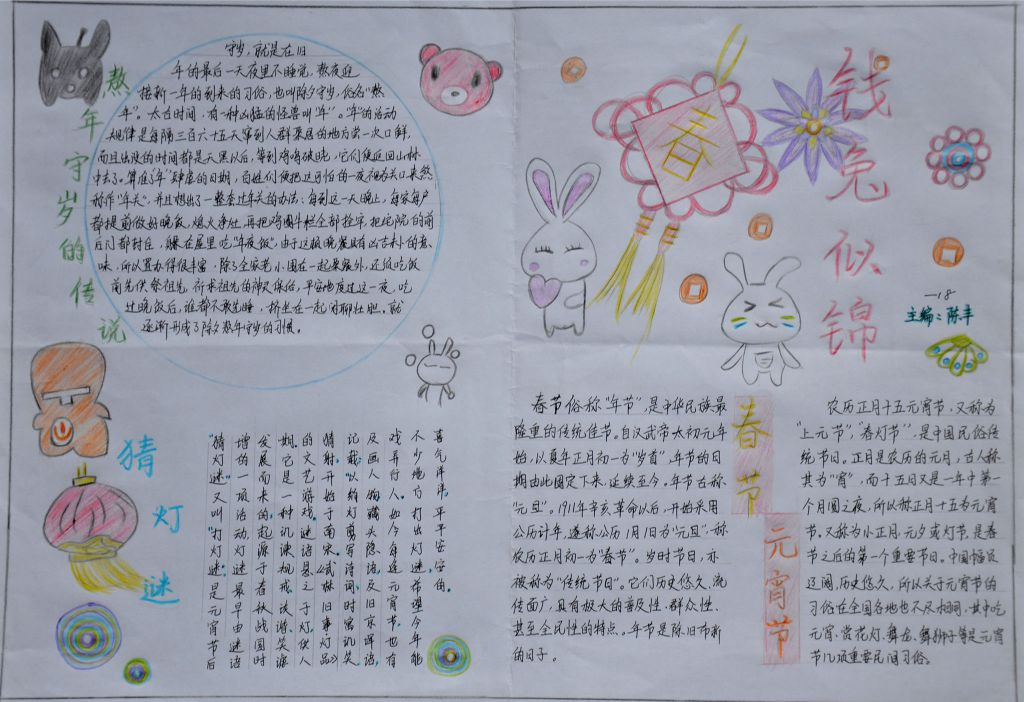 熬年守岁的传说
守岁，就是在旧
年的最后一天夜里不睡觉，熬夜迎
接新一年的到来的习俗，也叫除夕守岁，俗名"熬
年"。太古时间，有一种凶猛的怪兽叫"年"。"年"的活动
规律是每隔三百六十五天窜到人群聚居的地方尝一次口鲜，
而且出没的时间都是天黑以后，等到鸡鸣破晓，它们便返回山林
中去了。算准了"年"肆虐的日期，百姓们便把这可怕的一夜视为关口来熬，
称作"年关"，并且想出了一整套过年关的办法：每到这一天晚上，每家每户
都提前做好晚饭，熄火净灶，再把鸡圈牛栏全部拴牢，把宅院的前
后门都封住，躲在屋里吃"年夜饭"，由于这顿晚餐具有凶吉未卜的意
味，所以置办得很丰富，除了全家老小围在一起聚餐外，还在吃饭
前先供祭祖先，祈求祖先的神灵保佑，平安地度过这一夜，吃
过晚饭后，谁都不敢先睡，挤坐在一起闲聊壮胆。就
逐渐形成了除夕熬年守岁的习惯。
猜灯谜
"猜灯谜"又叫"打灯谜"是元宵节后
增的一项活动，灯谜最早由谜语
发展而来的，起源于春秋战国时
期。它是一种讥谏规戒、谈谐、笑谑
的文艺游戏。谜语悬之于灯，供人
猜射，开始于南宋。《武林旧事·灯品》
记载："以绢灯剪写诗词，时寓讥笑，
及画人物，藏头隐语，及旧京诨语，
戏弄行人。"如今每逢元宵节，也有
不少地方打出灯谜，希望今年能
喜气洋洋，平平安安的。
春
钱兔似锦
一18
主编：陈丰
春节
春节俗称"年节"，是中华民族最
隆重的传统佳节。自汉武帝太初元年
始，以夏年正月初一为"岁首"，年节的日
期由此固定下来，延续至今。年节古称
"元旦"。1911年辛亥革命以后，开始采用
公历计年，遂称公历1月1日为"元旦"，称
农历正月初一为"春节"。岁时节日，亦
被称为"传统节日"。它们历史悠久、流
传面广，具有极大的普及性、群众性、
甚至全民性的特点。年节是除旧布新
的日子。
元宵节
农历正月十五元宵节，又称为
"上元节"，"春灯节"，是中国民俗传
统节日。正月是农历的元月，古人称
其为"宵"，而十五日又是一年中第一
个月圆之夜，所以称正月十五为元宵
节。又称为小正月、元夕或灯节，是春
节之后的第一个重要节日。中国幅员
辽阔，历史悠久，所以关于元宵节的
习俗在全国各地也不尽相同，其中吃
元宵、赏花灯、舞龙、舞狮子等是元宵
节几项重要民间习俗。